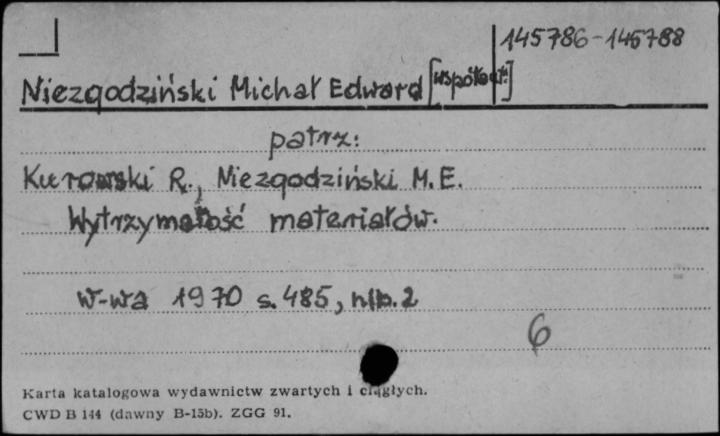 145786-145788
Niezgodziński Michał Edward [współaut.]
patrz:
Kurowski R., Niezgodziński M.E.
Wytrzymałość materiałów.
W-wa 1970 s. 485, nlb. 2
6
Karta katalogowa wydawnictw zwartych i ciągłych.
CWD B 144 (dawny B-15b). ZGG 91.